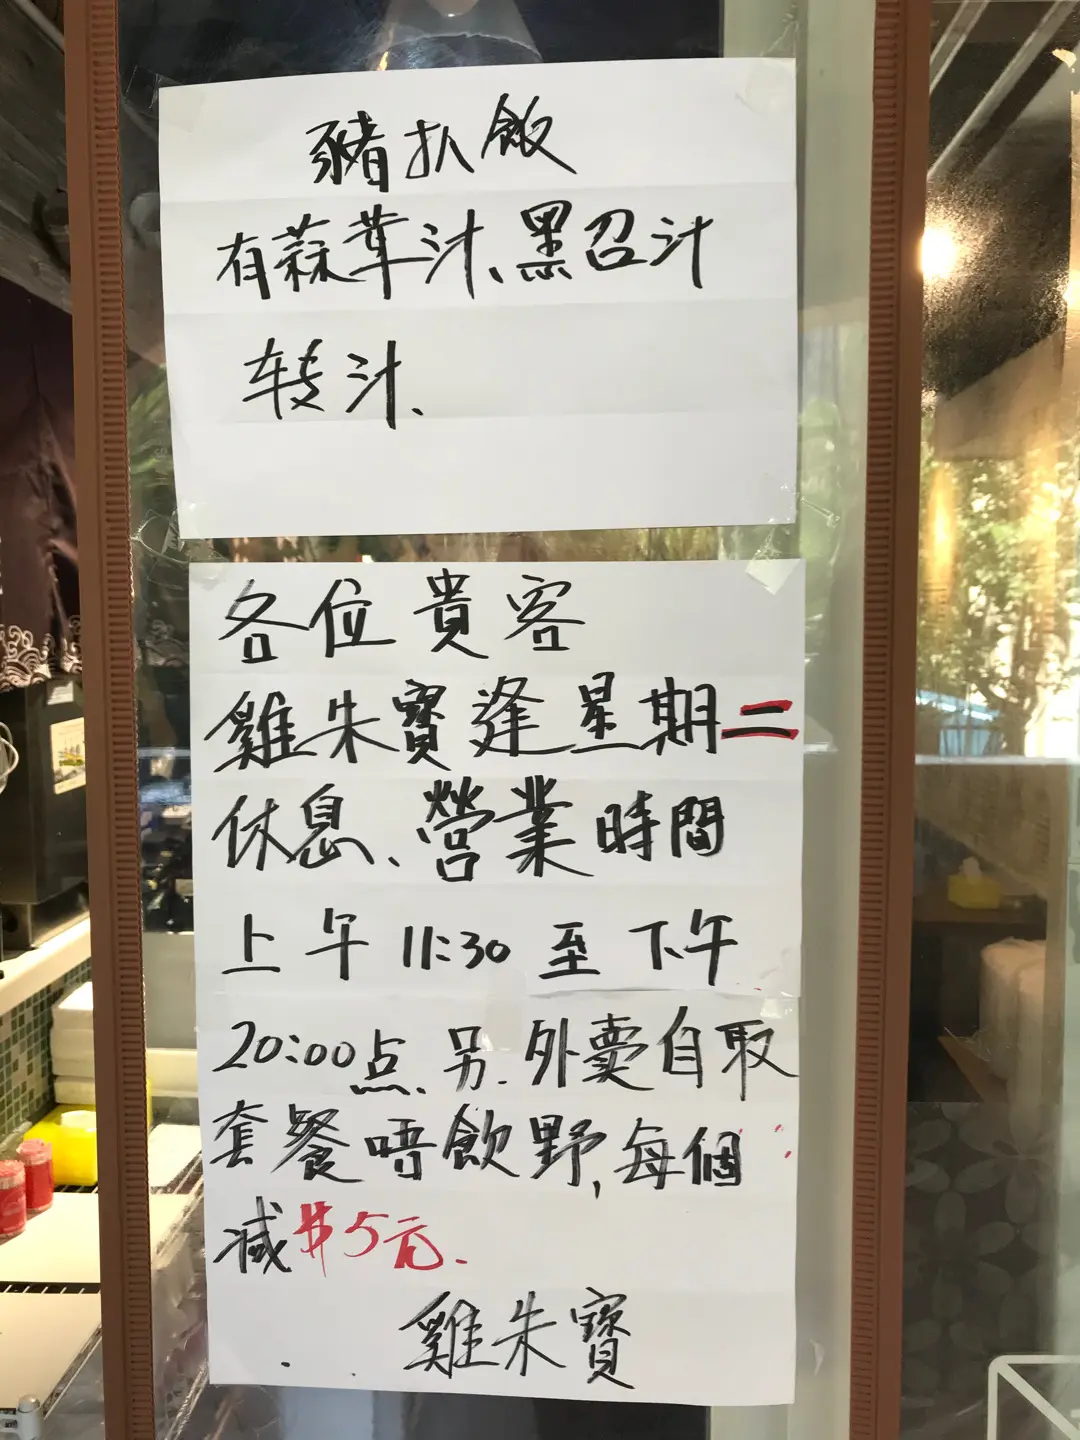 豬扒飯
有蒜茸汁、黑召汁
转汁、
各位貴客
雞朱寶逢星期二
休息、營業時間
上午11:30至下午
20:00点、另、外卖自取
套餐唔飲野,每個
减$5元.
雞朱寶